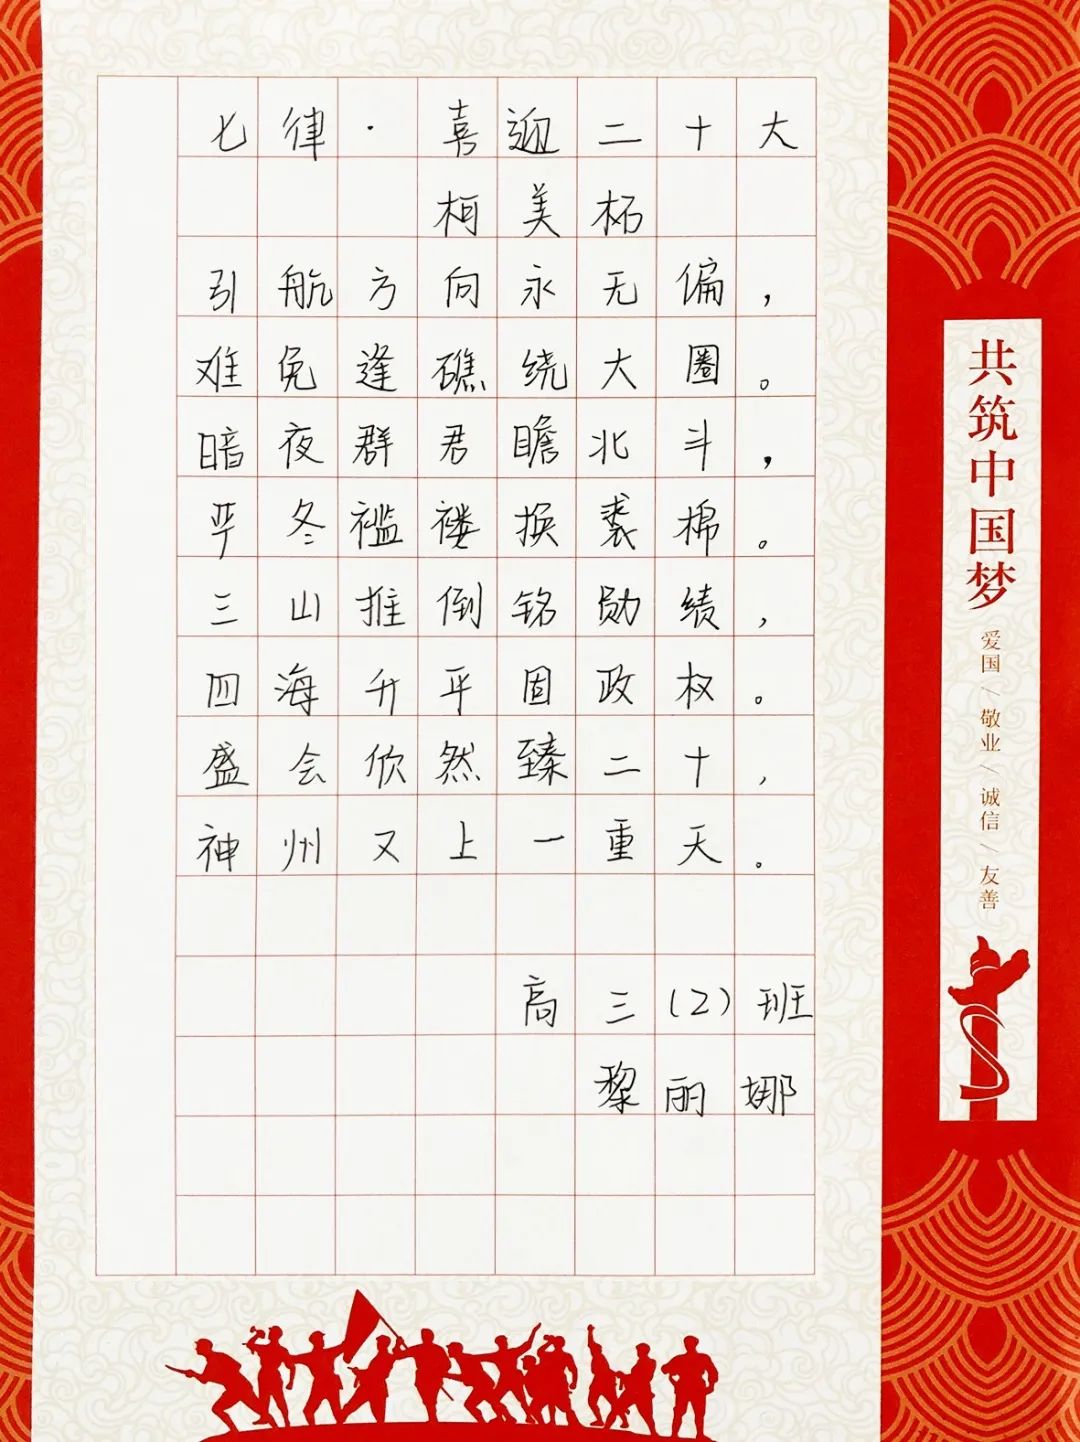 七律·喜迎二十大
柯美柘
引航方向永无偏，
难免逢礁绕大圈。
暗夜群君瞻北斗，
严冬褴褛换裘棉。
三山推倒铭勋绩，
四海升平固政权。
盛会欣然臻二十，
神州又上一重天。
高三(2)班
黎丽娜
共筑中国梦
爱国/敬业/诚信/友善